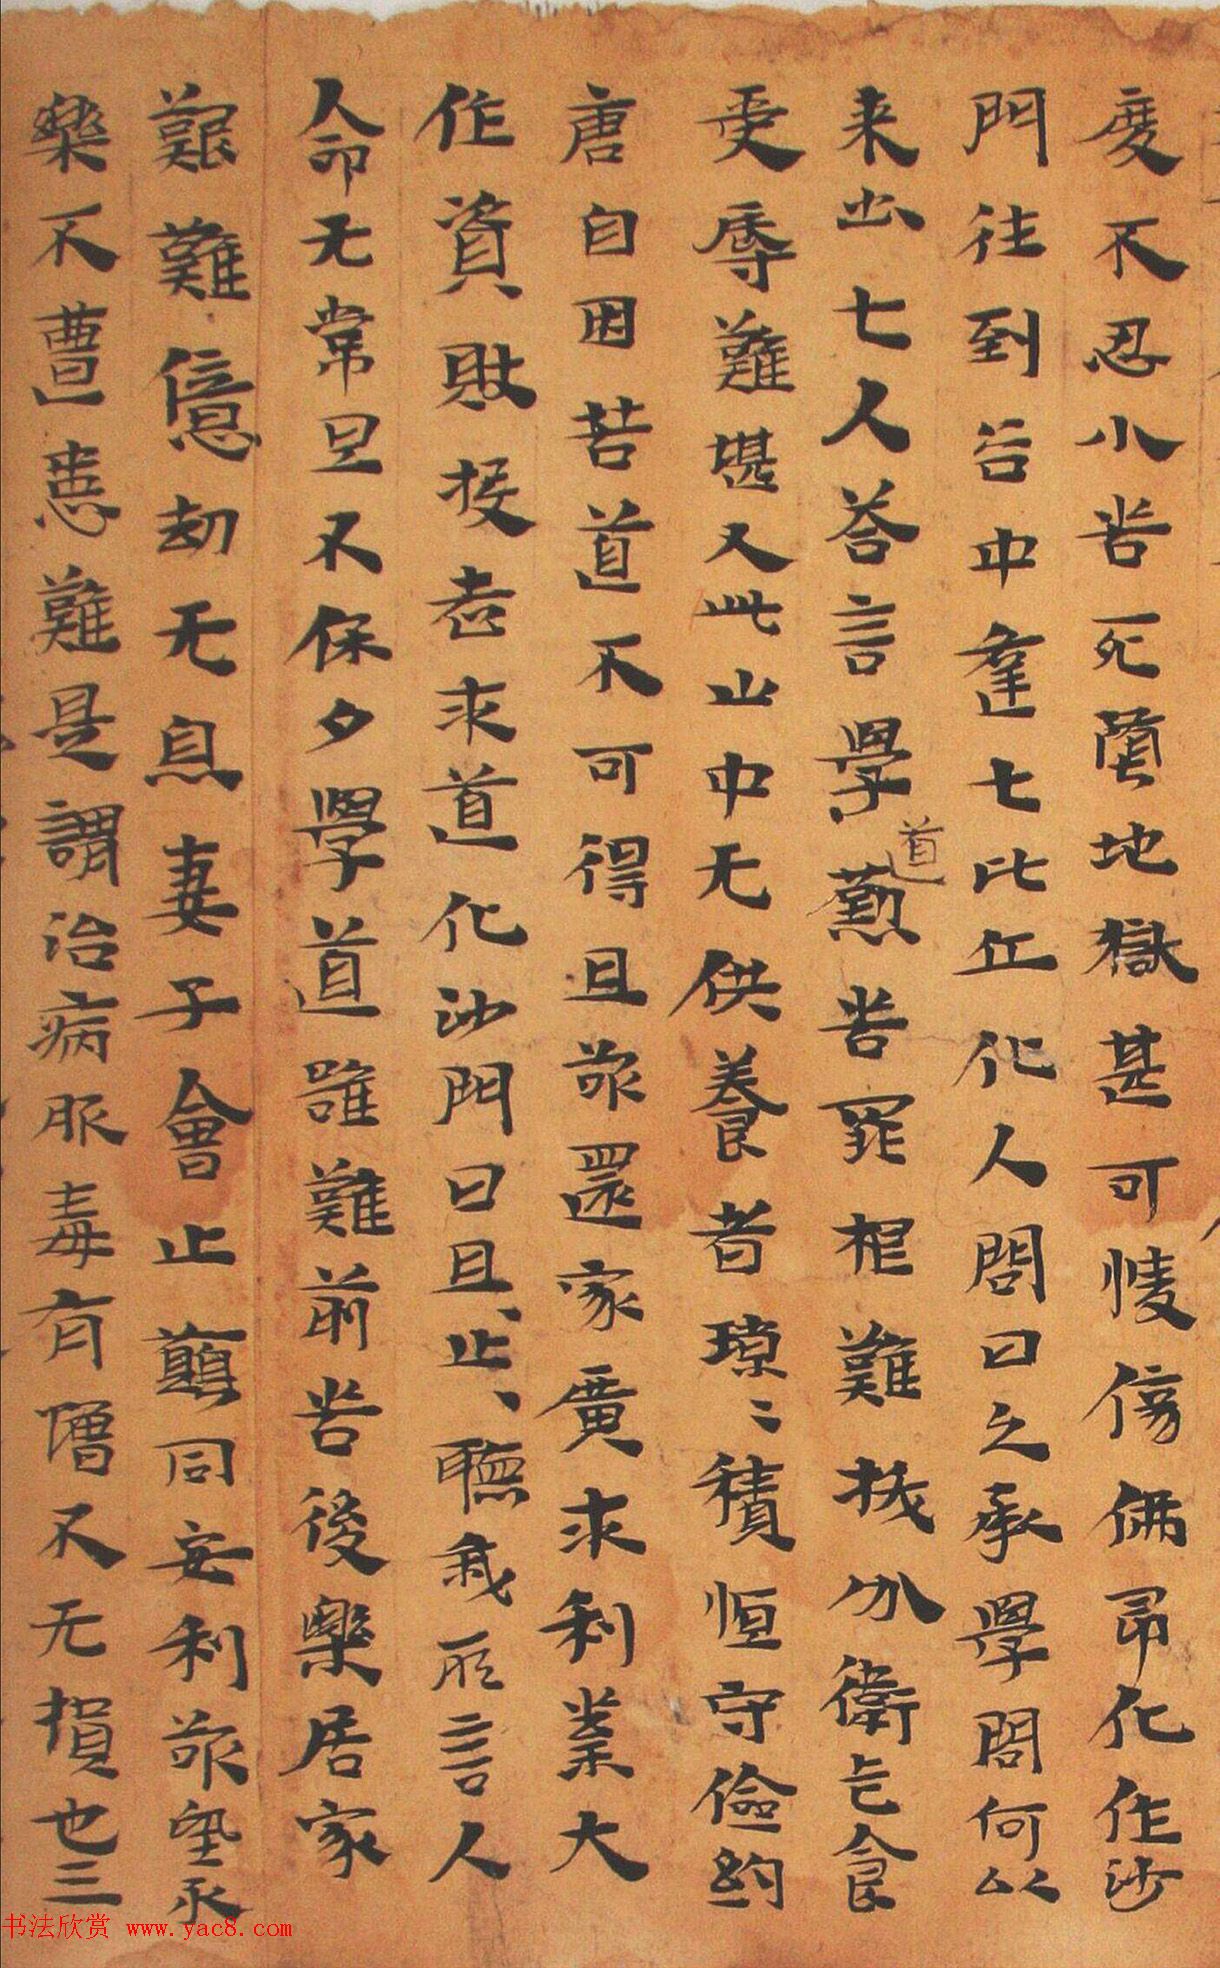 度不忍小苦死墮地獄甚可愍傷佛即化作沙
門往到谷中逢七比丘化人問曰久承學問何以
来出七人荅言學道懃苦罪根難拔分衛乞食
受辱難堪又此山中无供養者琼〻積恒守儉約
唐自困苦道不可得且欲還家廣求利業大
作資財投老求道化沙門曰且止、聽我所言人
人命无常旦不保夕學道雖難前苦後樂居家
艱難億劫无息妻子會止願同安利欲望永
樂不遭患難是謂治病服毒有增不无損也三
书法欣赏 www.yac8.com